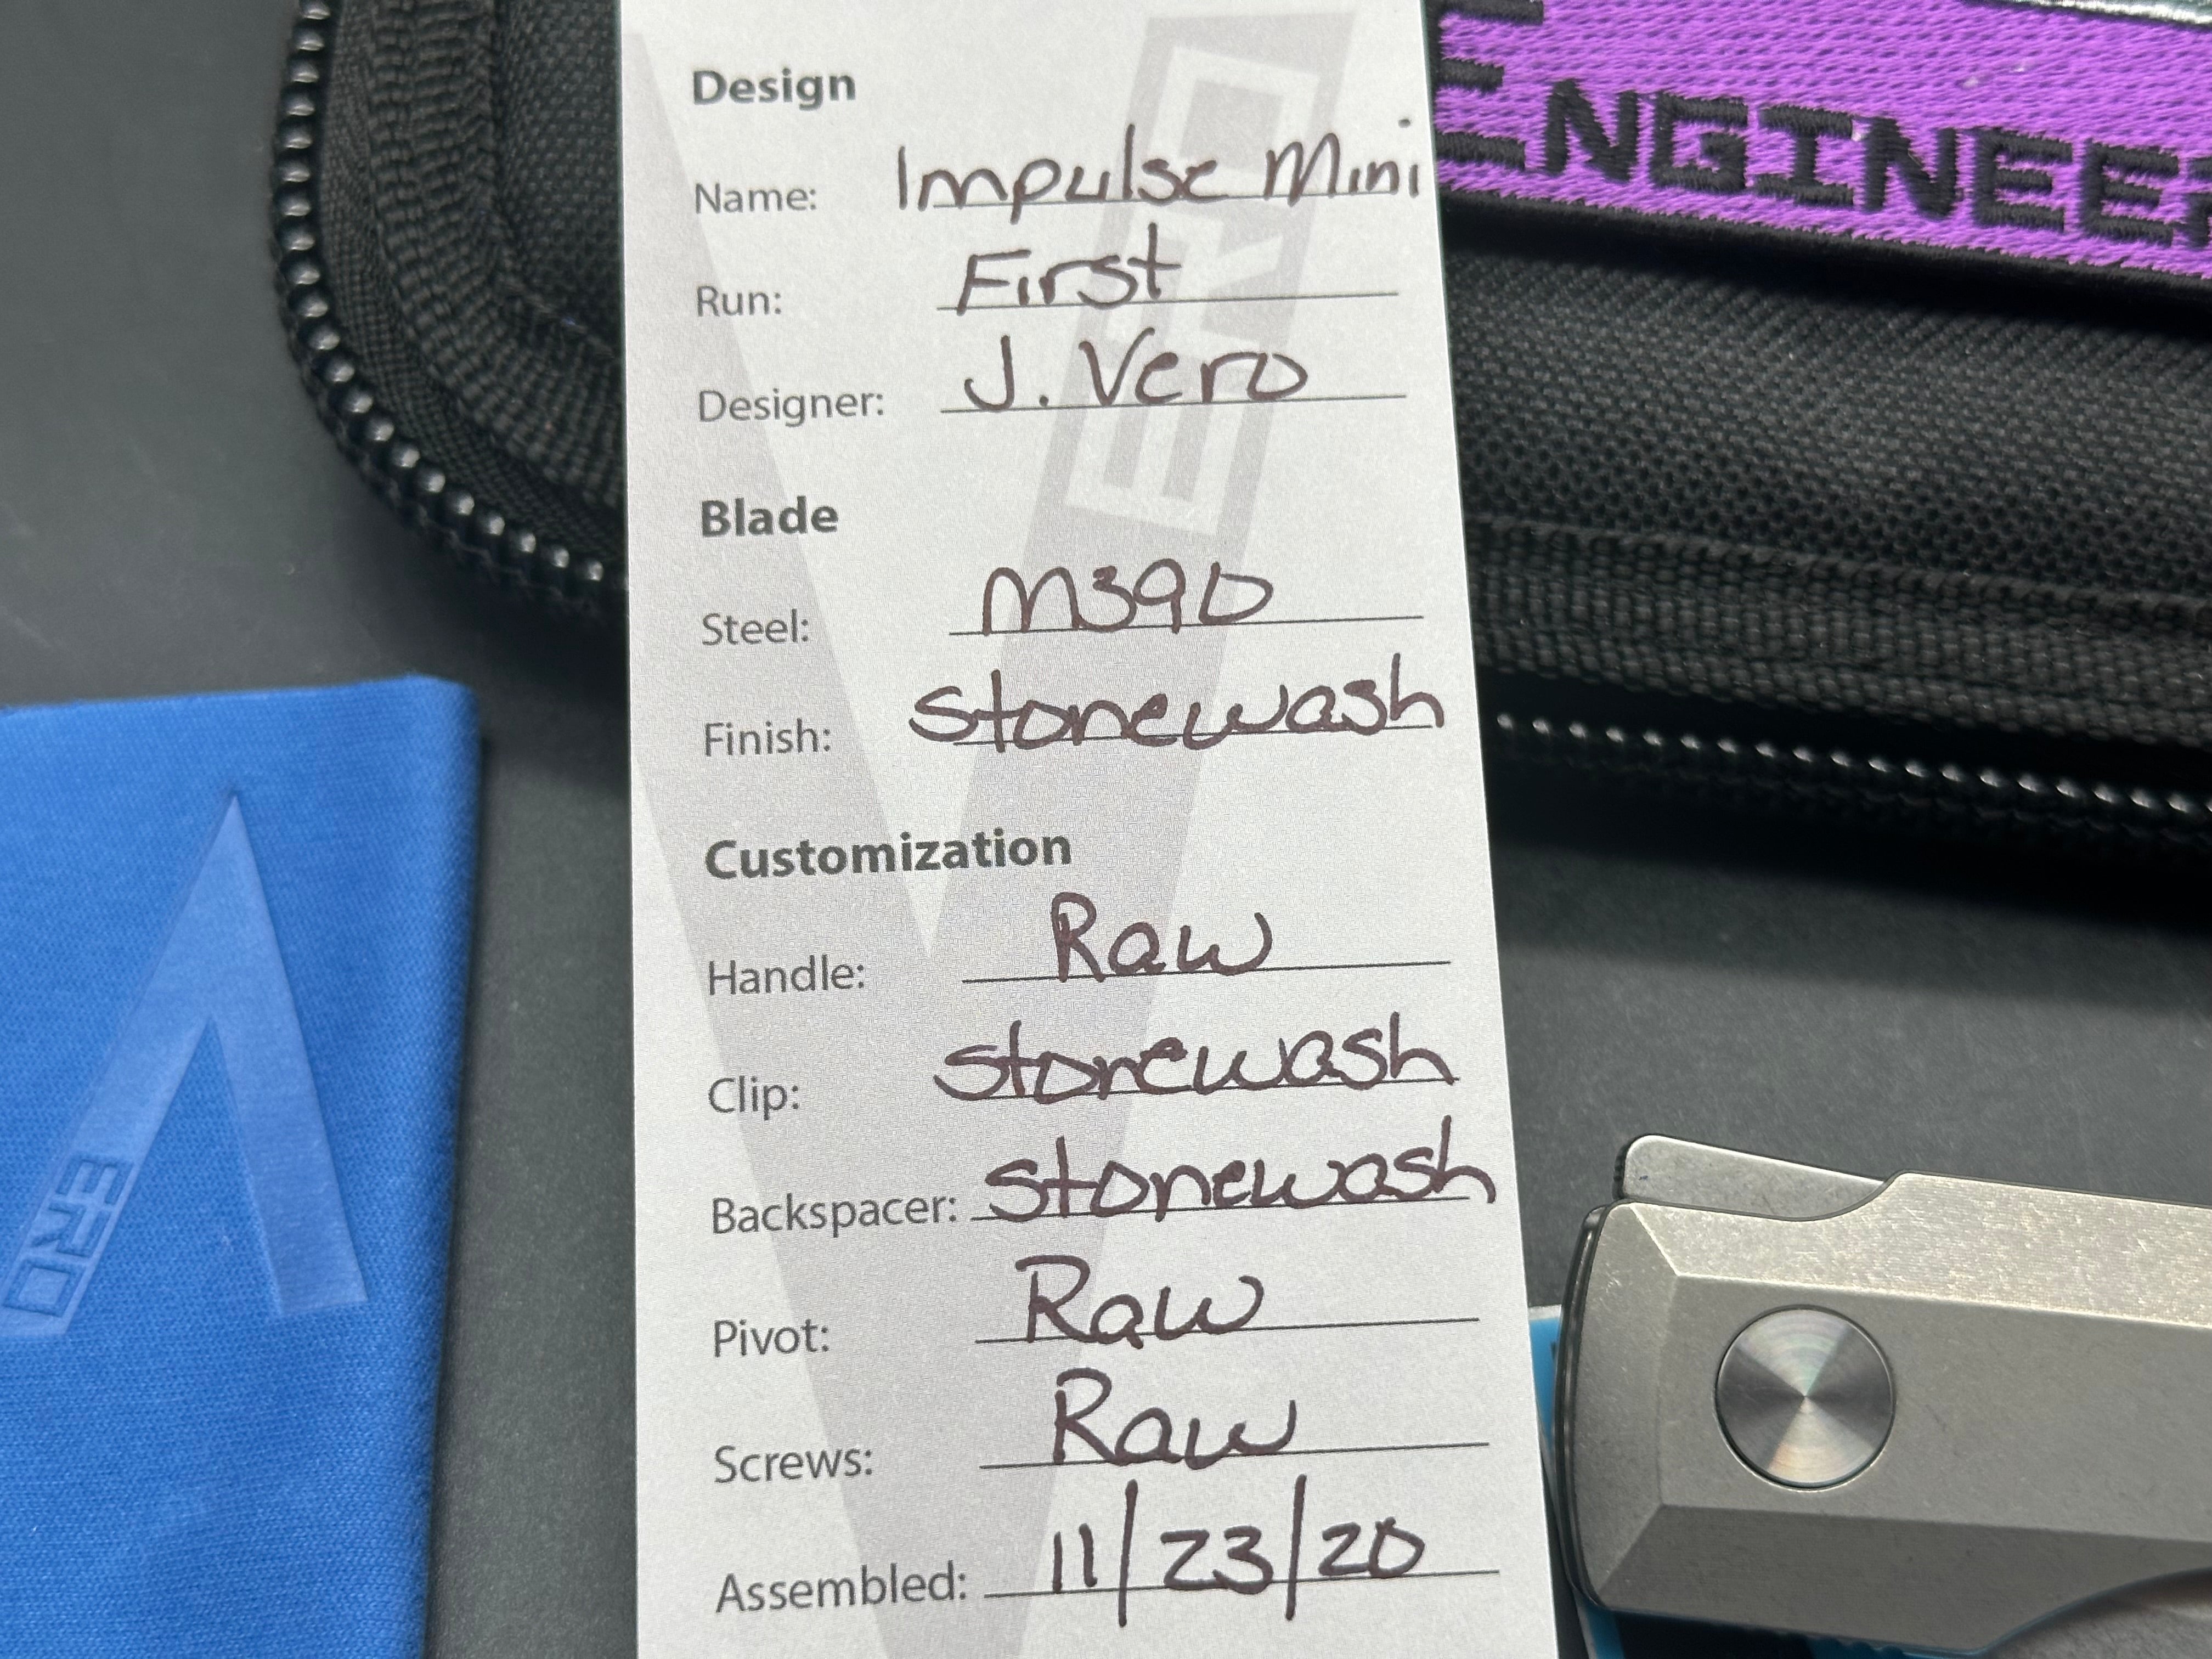 Design
Name: Impulse Mini
Run: First
Designer: J. Vero
Blade
Steel: M390
Finish: Stonewash
Customization
Handle: Raw
Clip: Stonewash
Backspacer: Stonewash
Pivot: Raw
Screws: Raw
Assembled: 11/23/20
VERO
VERO
ENGINEER